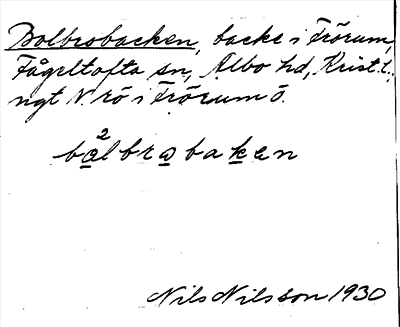 Bolbrobacken, backe i Frörum,
Fågeltofta sn, Albo hd, Krist. l.,
ngt N rö i Frörum ö.
bo²lbrobaken
Nils Nilsson 1930